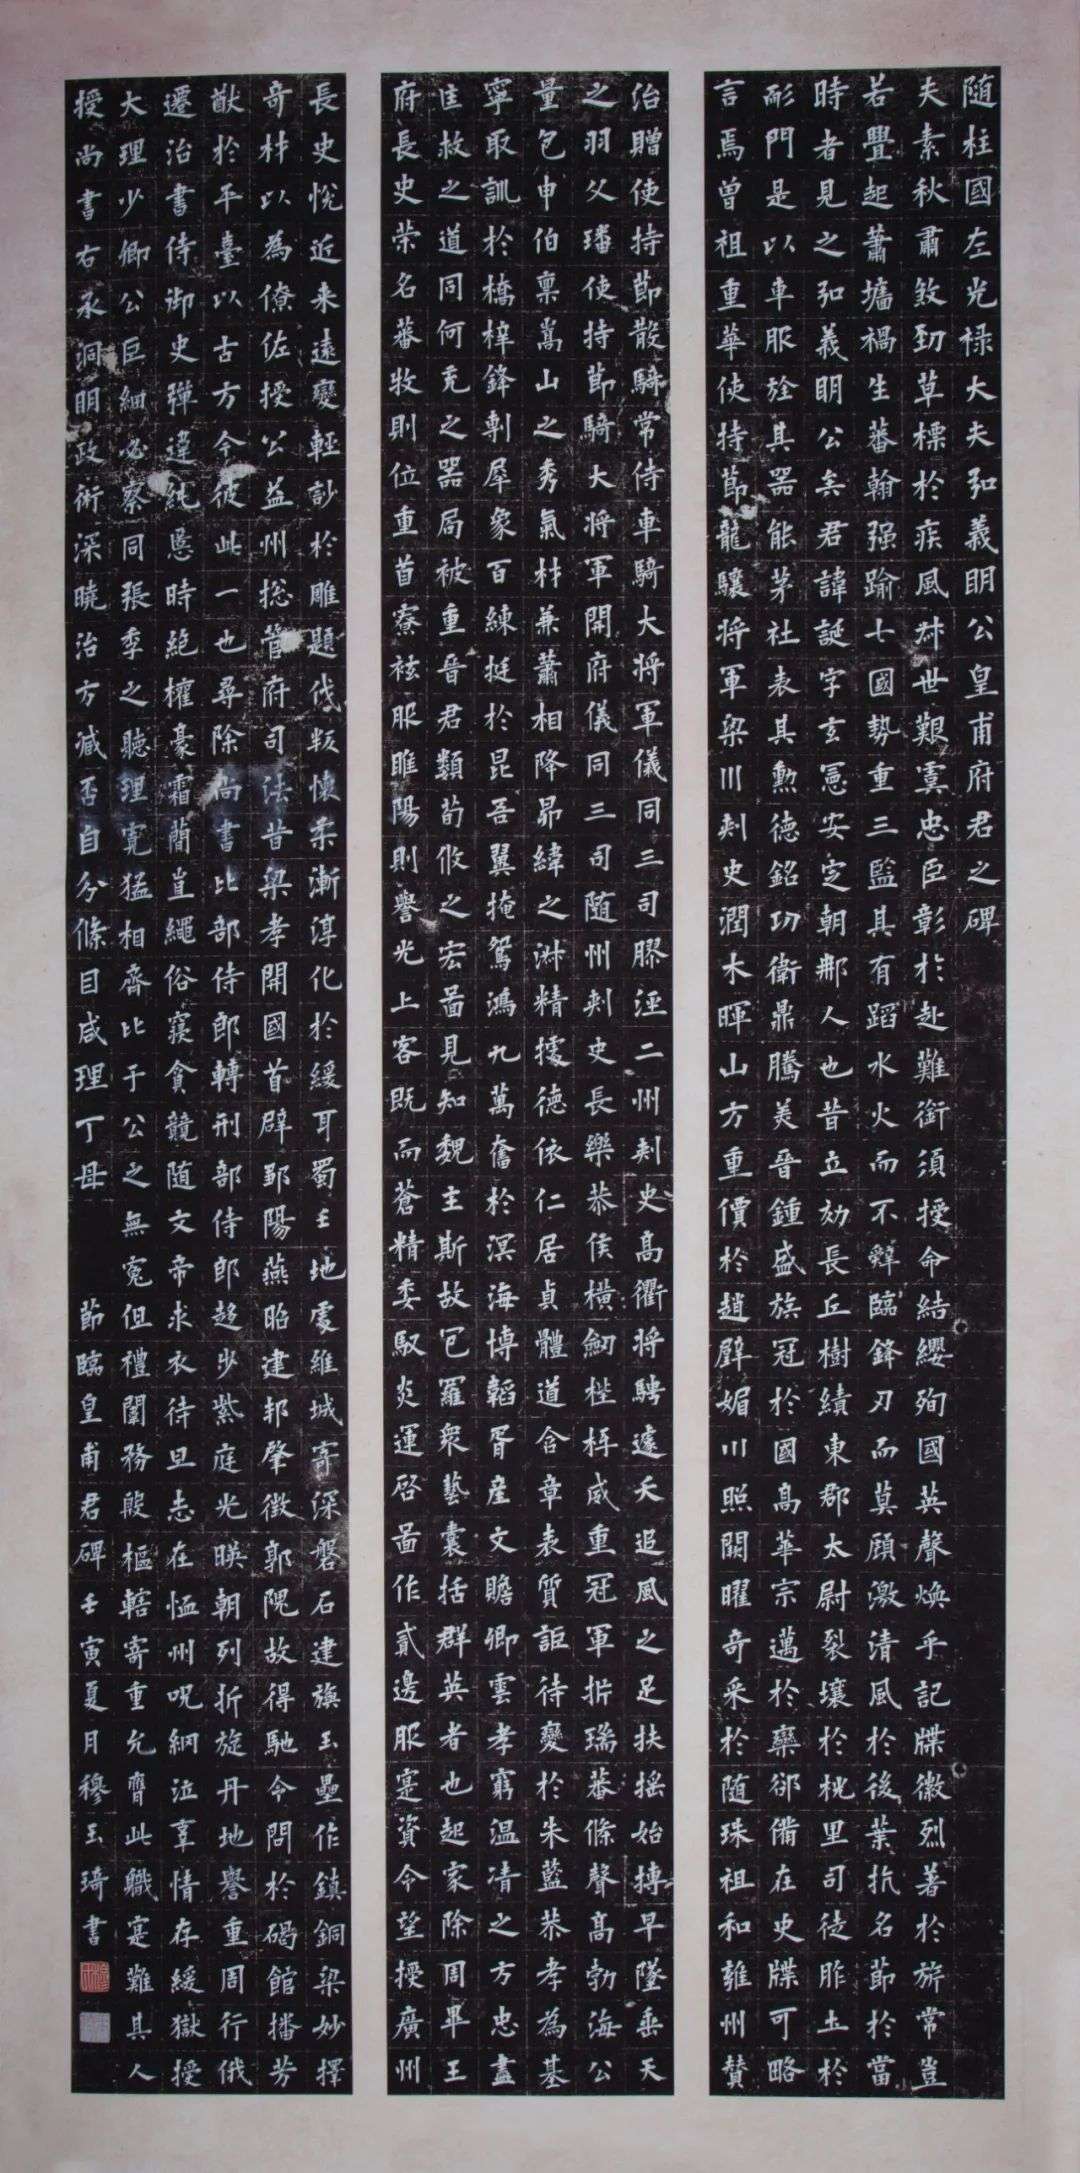 随柱國左光禄大夫弘義明公皇甫府君之碑
夫素秋肅煞勁草標於疾風叔世艱虞忠臣彰於赴難銜須授命結纓殉國英聲煥乎記牒徽烈著於旂常豈
若疊起蕭墻禍生蕃翰强踰七國勢重三監其有蹈水火而不辤臨鋒刃而莫顧激清風於後葉抗名節於當
時者見之弘義明公矣君諱誕字玄憲安定朝那人也昔立効長丘樹績東郡太尉裂壤於桃里司徒胙土於
耏門是以車服旌其器能茅社表其勳德銘功衛鼎騰美晉鍾盛族冠於國高華宗邁於欒郤備在史牒可略
言焉曾祖重華使持節龍驤将軍梁州刺史潤木暉山方重價於趙璧媚川照闕曜奇采於随珠祖和雍州賛
治贈使持節散騎常侍車騎大将軍儀同三司膠涇二州刺史高衢将騁遽夭追風之足扶摇始摶早墜垂天
之羽父璠使持節驃騎大将軍開府儀同三司随州刺史長樂恭侯横劒桎梏威重冠軍折瑞蕃條聲高勃海公
量包申伯稟嵩山之秀氣材兼蕭相降昴緯之淋精據德依仁居貞體道含章表質詎待變於朱藍恭孝為基
寧取訓於橋梓鋒剸犀象百練挺於昆吾翼掩鴛鴻九萬奮於溟海博韜胥産文贍卿雲孝窮温凊之方忠盡
匡救之道同何充之器局被重晉君類荀攸之宏啚見知魏主斯故包羅衆藝囊括群英者也起家除周畢王
府長史荣名蕃牧則位重首寮袨服睢陽則譽光上客既而蒼精委馭炎運啓啚作貳邊服寔資令望授廣州
長史悅近来遠變輕訬於雕題伐叛懷柔漸淳化於緩耳蜀王地處維城寄深磐石建旟玉壘作鎮銅梁妙擇
奇材以為僚佐授公益州揔管府司法昔梁孝開國首辟鄒陽燕昭建邦肇徵郭隗故得馳令問於碣館播芳
猷於平臺以古方今彼此一也尋除尚書比部侍郎轉刑部侍郎趍步紫庭光暎朝列折旋丹地譽重周行俄
遷治書侍御史彈違糺慝時絶權豪霜簡直繩俗寢貪競随文帝求衣待旦志在恤州咒網泣辜情存緩獄授
大理少卿公巨細必察同張季之聽理寛猛相齊比于公之無寃但禮闈務殷樞轄寄重允膺此職寔難其人
授尚書右丞洞明政術深曉治方臧否自分條目咸理丁母 節臨皇甫君碑壬寅夏月穆玉琦書